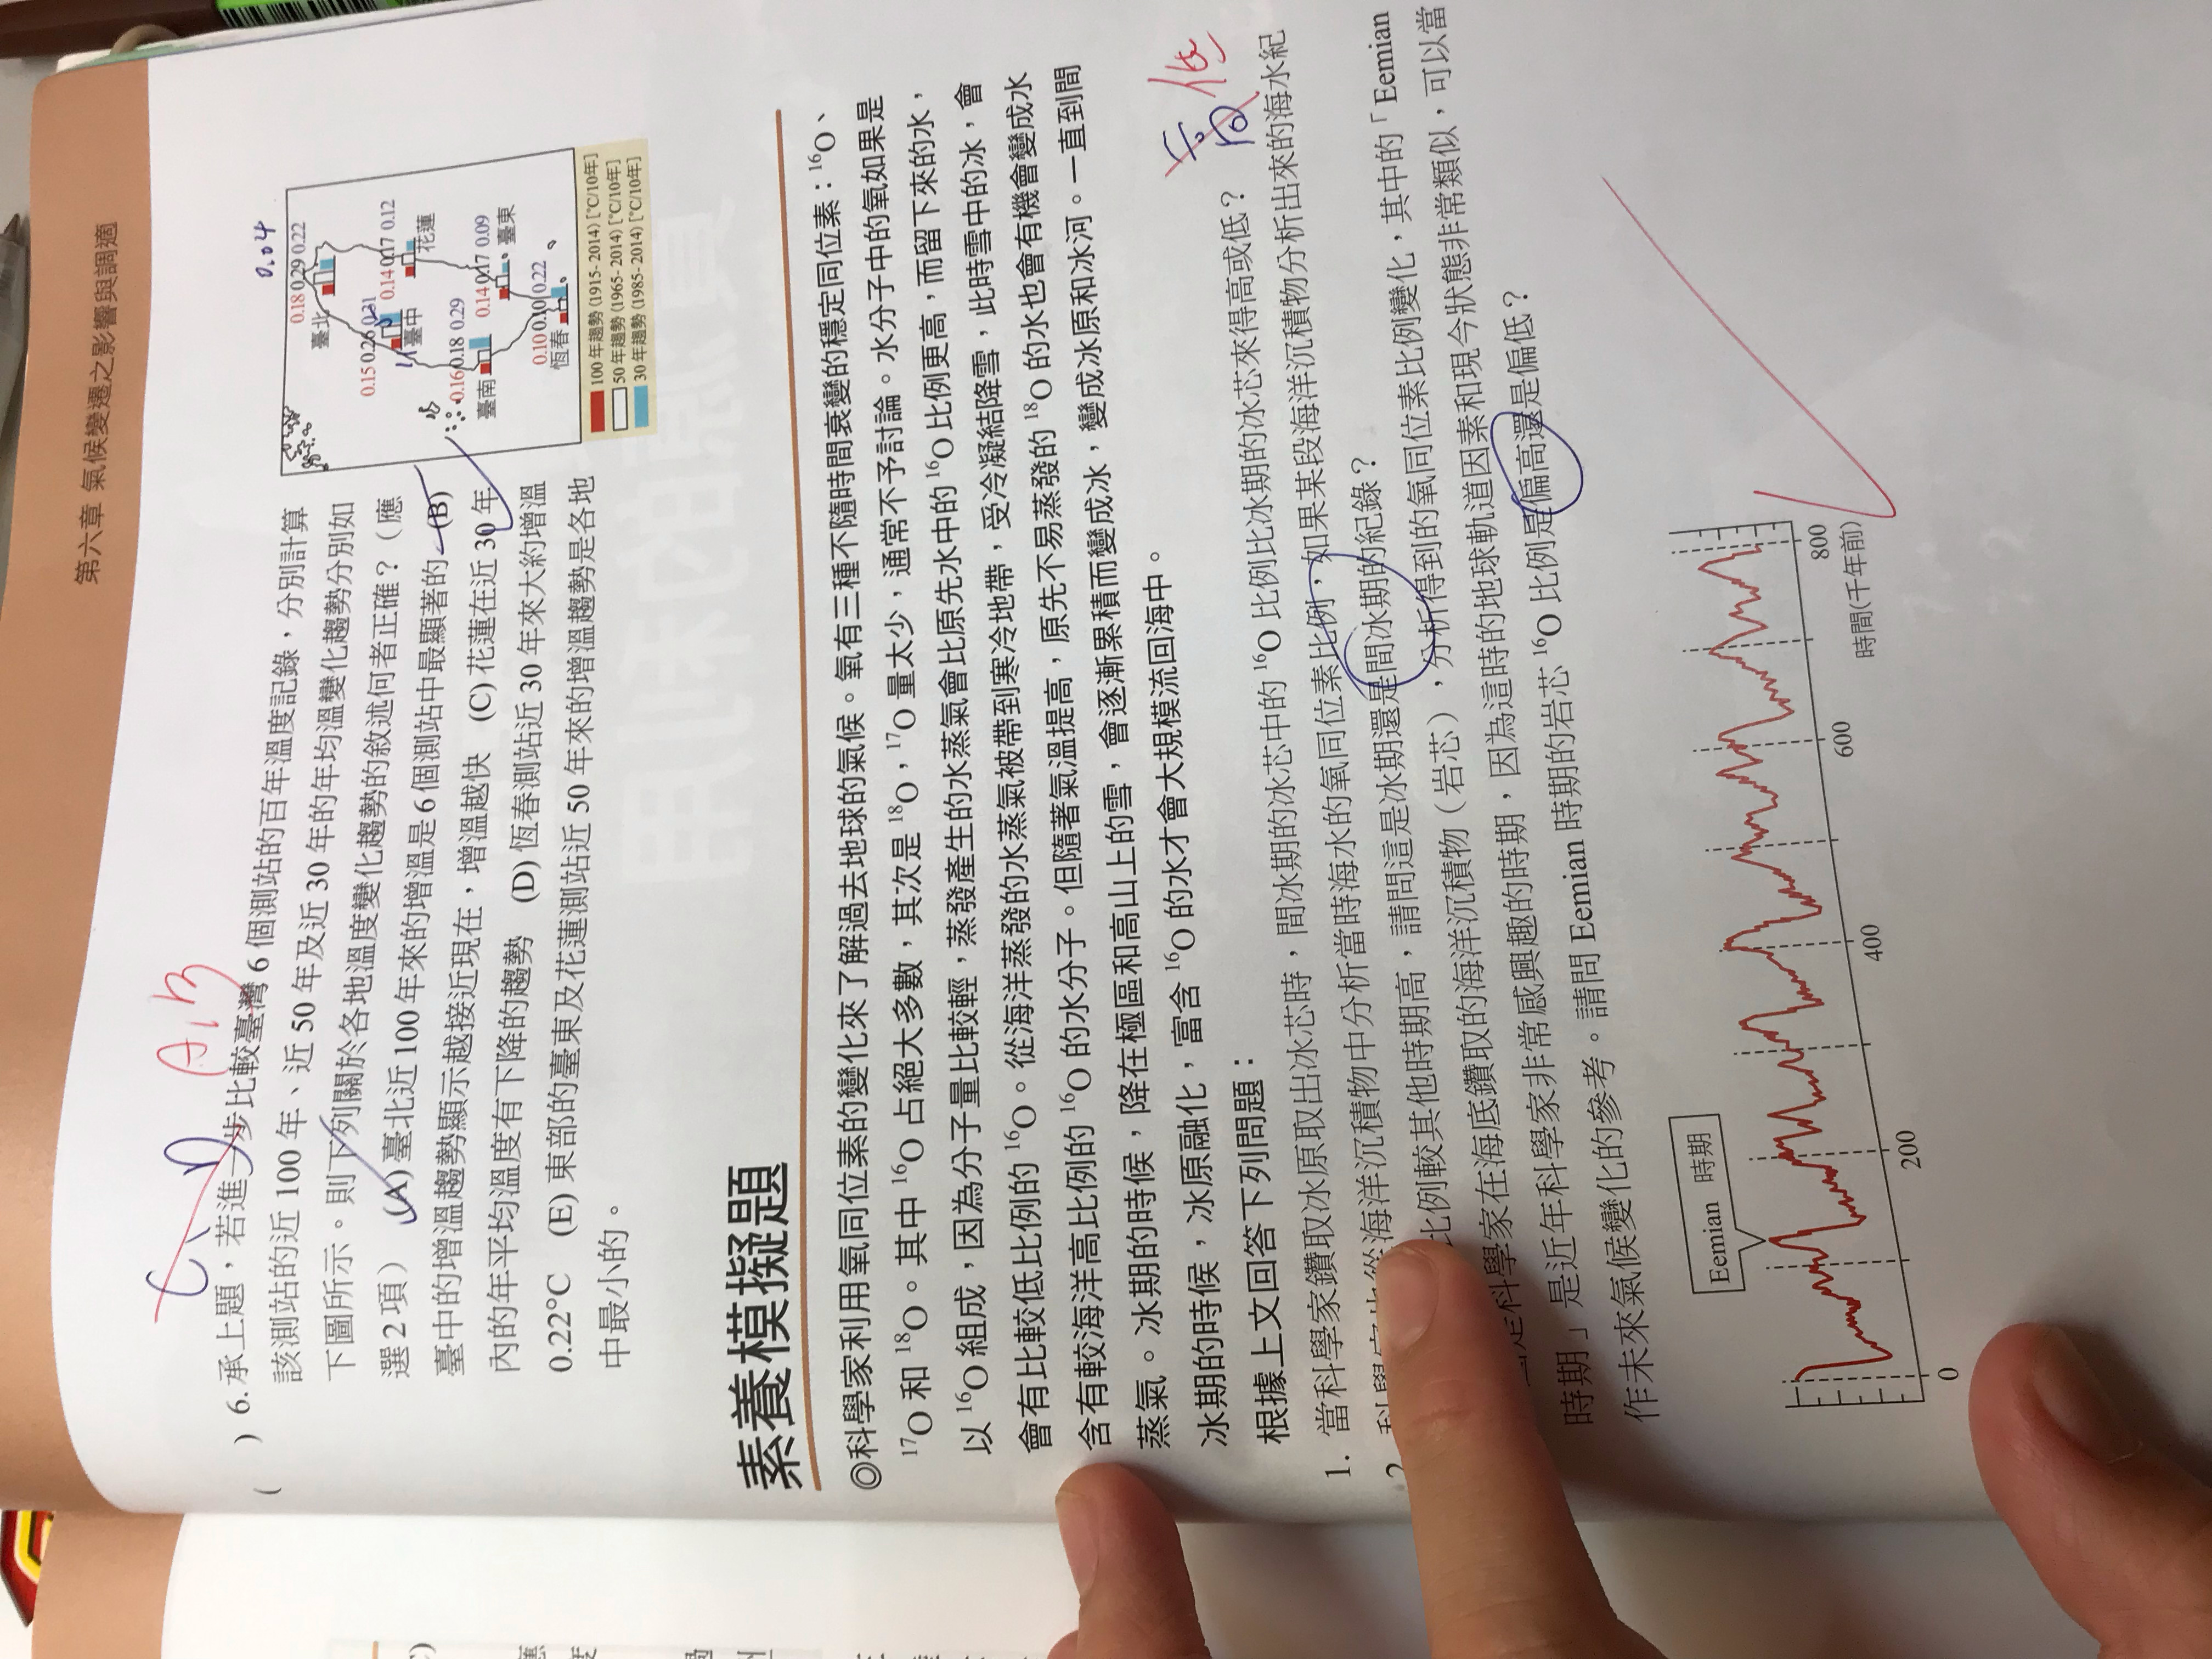 第六章 氣候變遷之影響與調適
C、D A B
( ) 6. 承上題，若進一步比較臺灣 6 個測站的百年溫度記錄，分別計算
該測站的近 100 年、近 50 年及近 30 年的年均溫變化趨勢分別如
下圖所示。則下列關於各地溫度變化趨勢的敘述何者正確？（應
選 2 項） (A) 臺北近 100 年來的增溫是 6 個測站中最顯著的 (B)
臺中的增溫趨勢顯示越接近現在，增溫越快 (C) 花蓮在近 30 年
內的年平均溫度有下降的趨勢 (D) 恆春測站近 30 年來大約增溫
0.22°C (E) 東部的臺東及花蓮測站近 50 年來的增溫趨勢是各地
中最小的。
0.04
0.18 0.29 0.22
臺北
0.15 0.26 0.31
臺中
0.14 0.17 0.12
花蓮
0.16 0.18 0.29
臺南
0.14 0.17 0.09
臺東
0.10 0.10 0.22
恆春
100 年趨勢 (1915- 2014) [°C/10年]
50 年趨勢 (1965- 2014) [°C/10年]
30 年趨勢 (1985- 2014) [°C/10年]
素養模擬題
◎科學家利用氧同位素的變化來了解過去地球的氣候。氧有三種不隨時間衰變的穩定同位素：¹⁶O、
¹⁷O 和 ¹⁸O。其中 ¹⁶O 占絕大多數，其次是 ¹⁸O，¹⁷O 量太少，通常不予討論。水分子中的氧如果是
以 ¹⁶O 組成，因為分子量比較輕，蒸發產生的水蒸氣會比原先水中的 ¹⁶O 比例更高，而留下來的水，
會有比較低比例的 ¹⁶O。從海洋蒸發的水蒸氣被帶到寒冷地帶，受冷凝結降雪，此時雪中的冰，會
含有較海洋高比例的 ¹⁶O 的水分子。但隨著氣溫提高，原先不易蒸發的 ¹⁸O 的水也會有機會變成水
蒸氣。冰期的時候，降在極區和高山上的雪，會逐漸累積而變成冰，變成冰原和冰河。一直到間
冰期的時候，冰原融化，富含 ¹⁶O 的水才會大規模流回海中。
根據上文回答下列問題：
高 低
1. 當科學家鑽取冰原取出冰芯時，間冰期的冰芯中的 ¹⁶O 比例比冰期的冰芯來得高或低？
2. 海洋沉積物中分析當時海水的氧同位素比例，如果某段海洋沉積物分析出來的海水紀
比例較其他時期高，請問這是冰期還是間冰期的紀錄？
科學家在海底鑽取的海洋沉積物（岩芯），分析得到的氧同位素比例變化，其中的「Eemian
時期」是近年科學家非常感興趣的時期，因為這時的地球軌道因素和現今狀態非常類似，可以當
作未來氣候變化的參考。請問 Eemian 時期的岩芯 ¹⁶O 比例是偏高還是偏低？
Eemian 時期
0 200 400 600 800
時間(千年前)